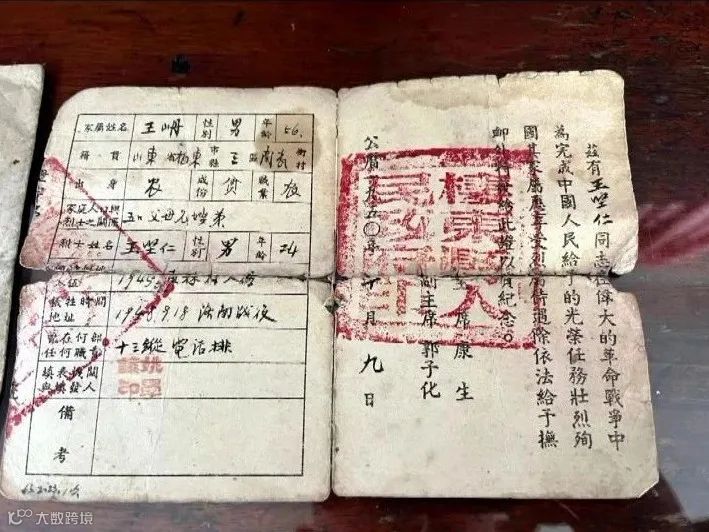 家屬姓名 王岫 性別 男 年齡 56
籍貫 山東省栖東市縣三區 街村
出身 农 成份 贫 職業 农
家庭人口與烈士之關係 五口父母兄嫂弟
烈士姓名 王坒仁 性別 男 年齡 24
1945
犧牲時間地址 1948.9.18 濟南战役
曾在何部任何職 十三縱 電话排
填表機關與填發人
備考
茲有王坒仁同志在偉大的革命戰爭中
為完成中國人民給予的光榮任務壯烈殉
國其家屬應享受烈屬待遇除依法給予撫
卹外特發給此證以資紀念。
主席 康生
副主席 郭子化
公曆一九五〇年 月九日
大数跨境